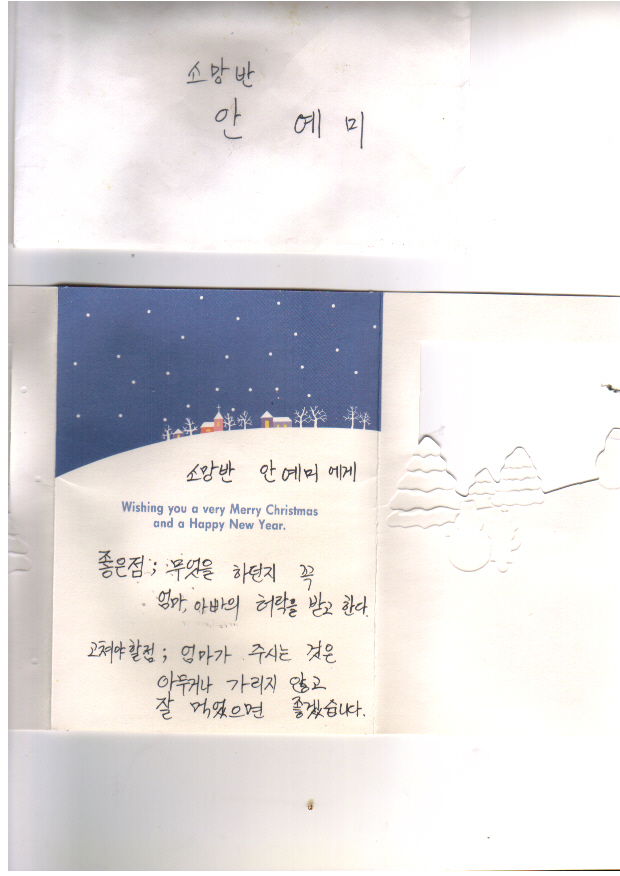 소망반
안 예미
소망반 안예미에게
Wishing you a very Merry Christmas
and a Happy New Year.
좋은점; 무엇을 하던지 꼭
엄마, 아빠의 허락을 받고 한다.
고쳐야할점; 엄마가 주시는 것은
아무거나 가리지 않고
잘 먹었으면 좋겠습니다.